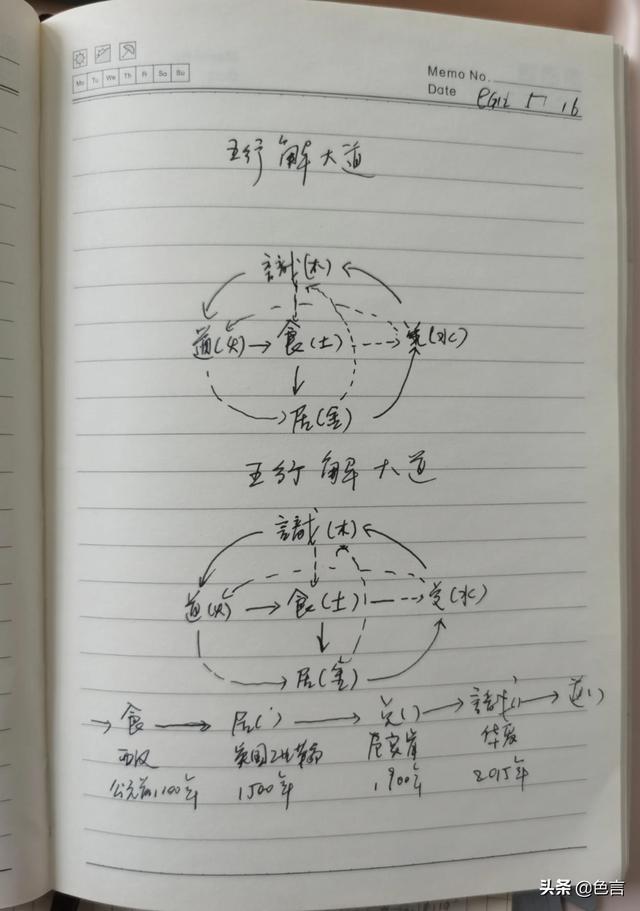 Mo Tu We Th Fr Sa Su
Memo No.
Date
五行解大道
識(木)
道(火) 食(土) 觉(水)
居(金)
五行解大道
識(木)
道(火) 食(土) 觉(水)
居(金)
食 居( ) 觉( ) 識( ) 道( )
英国工业革命 华夏
公元前1,100年 1500年 1,900年 2015年
头条 @色言